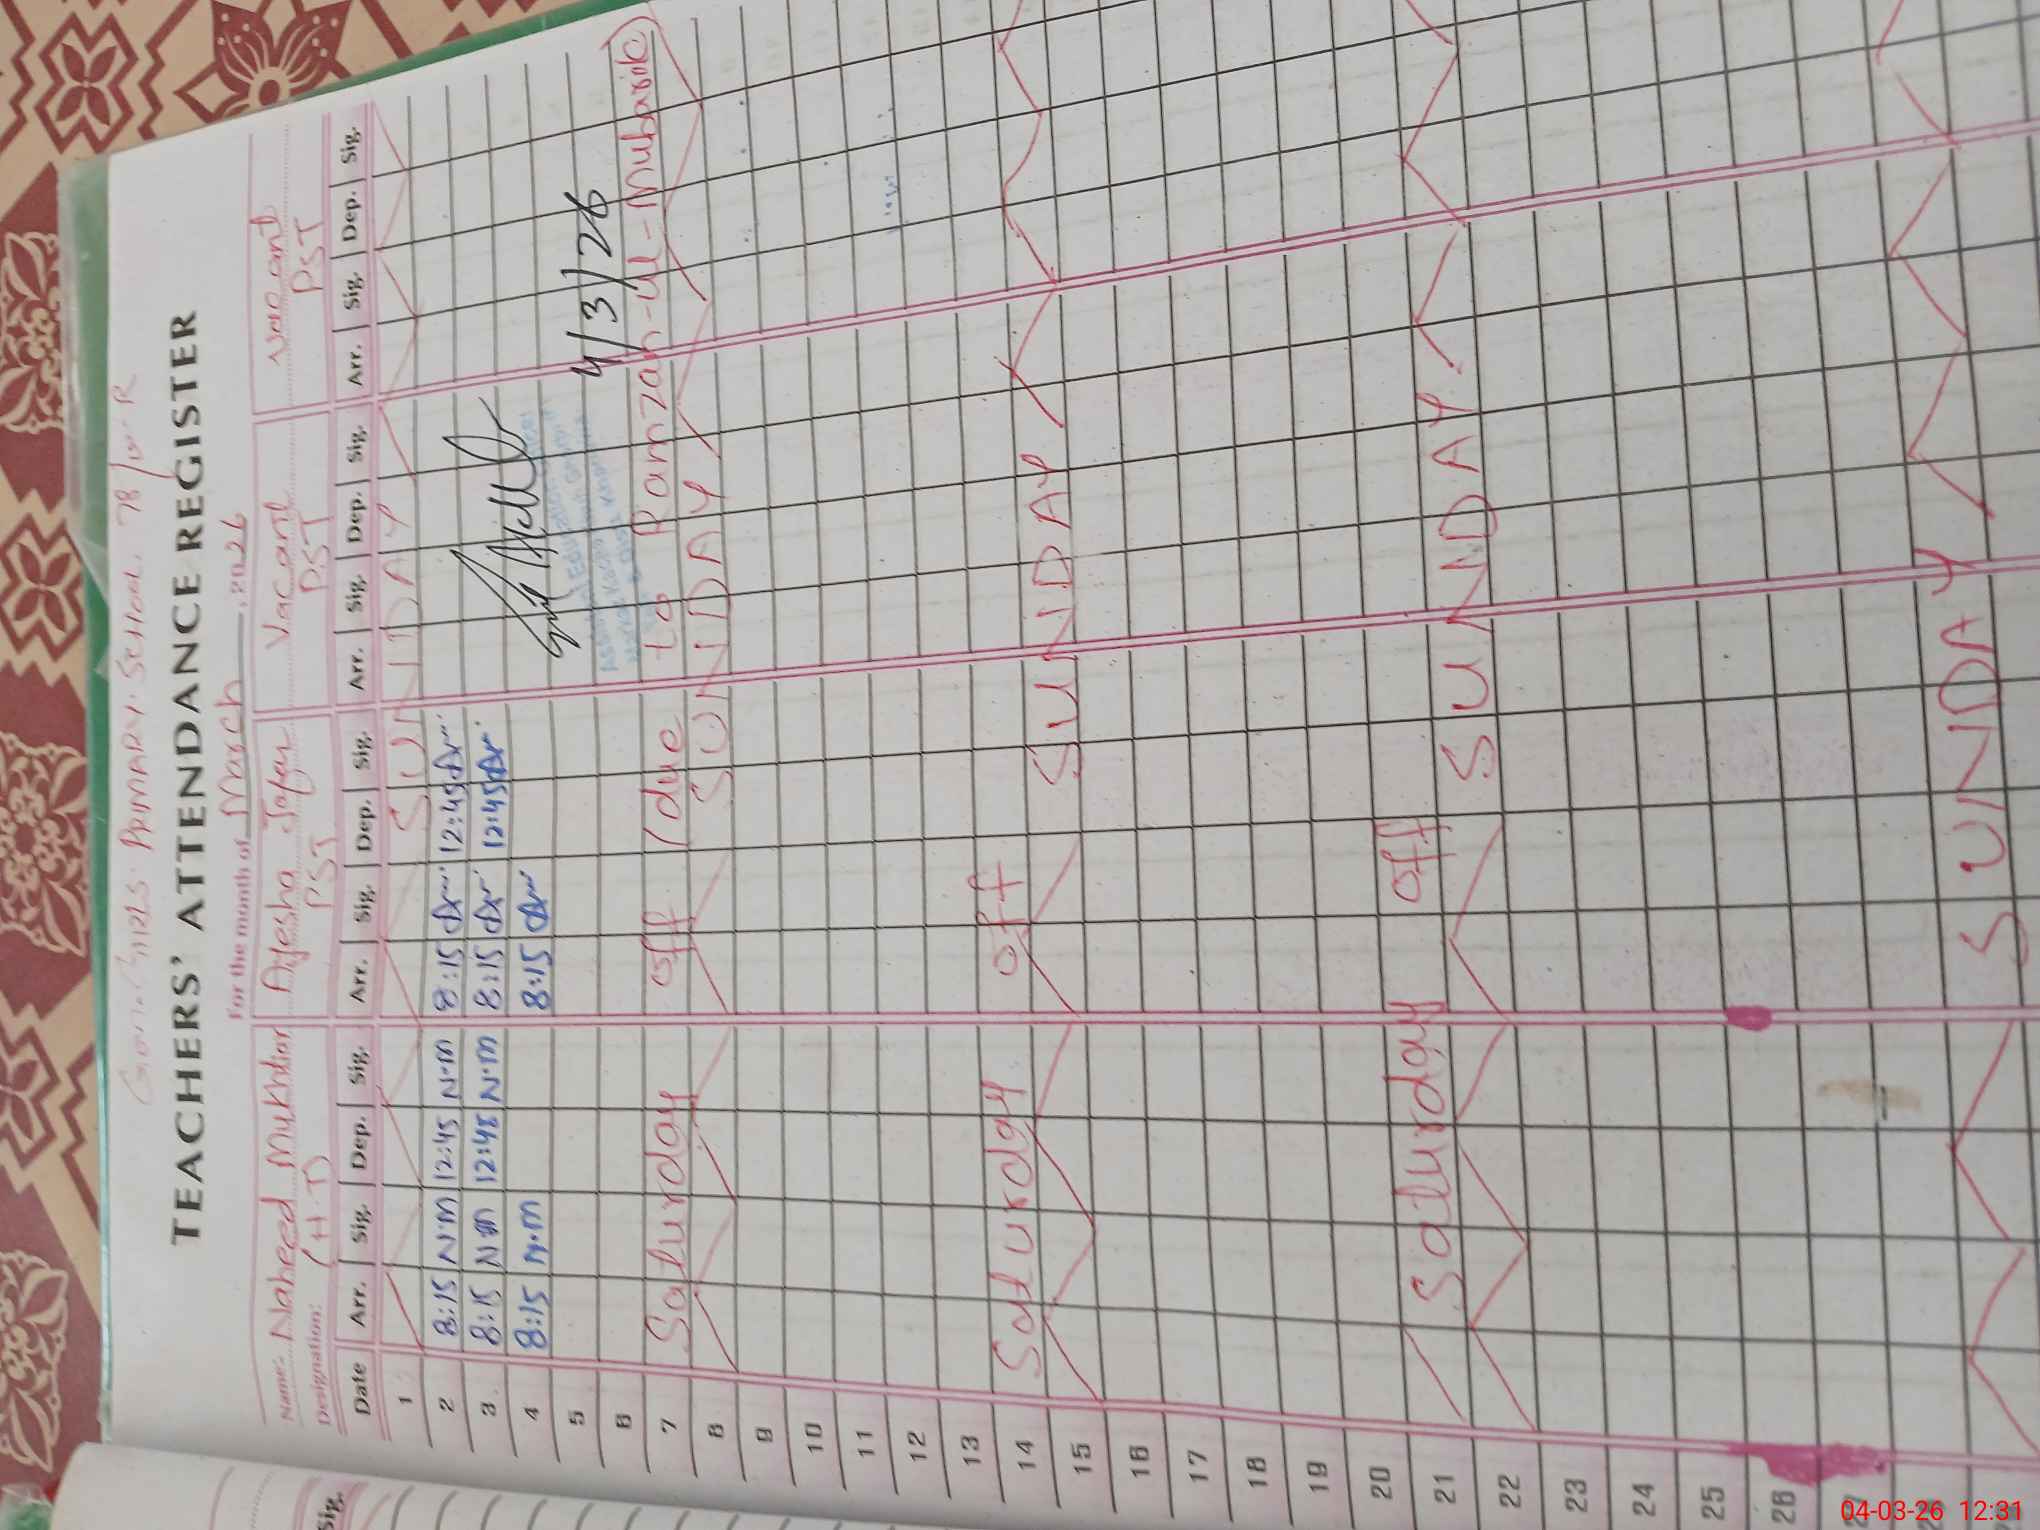 GIRLS. PRIMARY. SCHOOL. 78
TEACHERS' ATTENDANCE REGISTER
For the month of March, 2026
Name: Naheed Mukhtiar Ayesha Jafar Vacant Vacant
Designation: (H.T) PST PST PST
Date Arr. Sig. Dep. Sig. Arr. Sig. Dep. Sig. Arr. Sig. Dep. Sig. Arr. Sig. Dep. Sig.
1 SUNDAY
2 8:15 N.M 12:45 N.M 8:15 12:45
3 8:15 N.M 12:45 N.M 8:15 12:45
4 8:15 N.M 8:15
5 4/3/26
6
7 Saturday off (due to Ramzan-ul-Mubarik)
8 SUNDAY
9
10
11
12
13
14 Saturday off
15 SUNDAY
16
17
18
19
20
21 Saturday off
22 SUNDAY
23
24
25
26
27
SUNDAY
Sig.
04-03-26 12:31